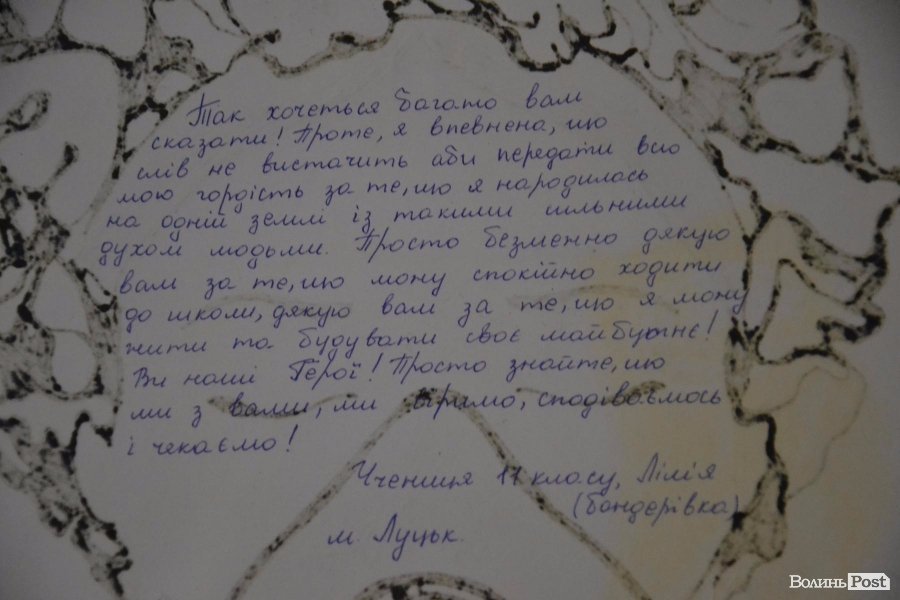 Так хочеться багато вам
сказати! Проте, я впевнена, що
слів не вистачить аби передати всю
мою гордість за те, що я народилась
на одній землі із такими сильними
духом людьми. Просто безмежно дякую
вам за те, що можу спокійно ходити
до школи, дякую вам за те, що я можу
жити та будувати своє майбутнє!
Ви наші Герої! Просто знайте, що
ми з вами, ми віримо, сподіваємось
і чекаємо!
Учениця 11 класу, Лілія
(бандерівка)
м. Луцьк.
ВолиньPost